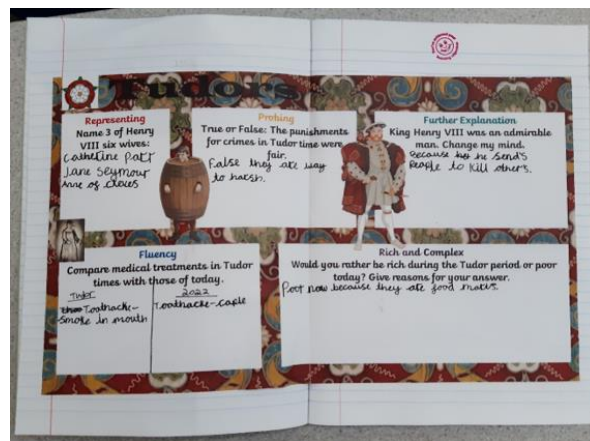 Tudors
Representing
Name 3 of Henry
VIII six wives:
Catherine Parr
Jane Seymour
Anne of cleves
Probing
True or False: The punishments
for crimes in Tudor time were
fair.
False they are way
to harsh.
Further Explanation
King Henry VIII was an admirable
man. Change my mind.
Because he send's
people to kill other's.
Fluency
Compare medical treatments in Tudor
times with those of today.
Tudor
Toothache-
Smoke in mouth
2022
Toothache-
Rich and Complex
Would you rather be rich during the Tudor period or poor
today? Give reasons for your answer.
Poor now because they are food